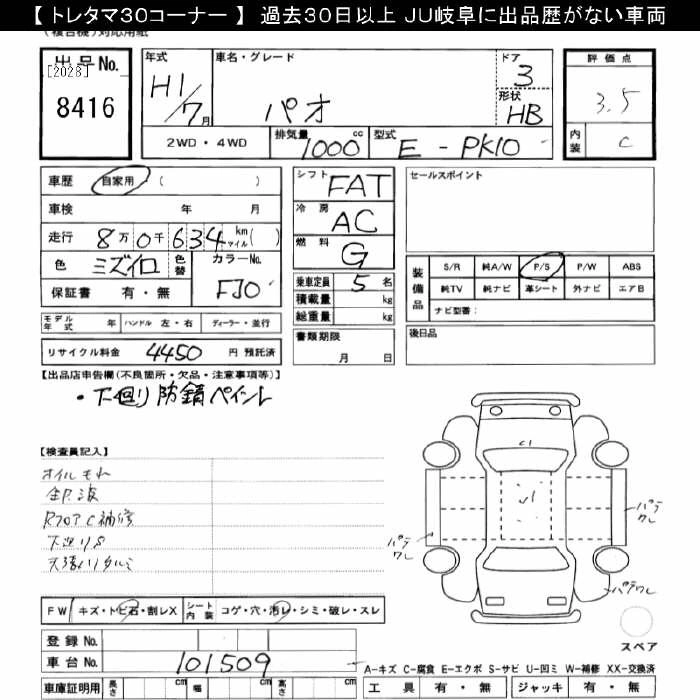 【トレタマ30コーナー】 過去30日以上 JU岐阜に出品歴がない車両
(複合機)対応用紙
出品No. [2028] 8416
年式 H1/7月
車名・グレード パオ
ドア 3
形状 HB
評価点 3.5
内装 C
2WD・4WD
排気量 1000 cc
型式 E-PK10
車歴 自家用 ( )
車検 年 月
走行 8万0千634 km マイル( )
色 ミズイロ 色替
カラーNo. FJ0
保証書 有・無
シフト FAT
冷房 AC
燃料 G
乗車定員 5 名
積載量 kg
総重量 kg
書類期限 月 日
セールスポイント
装備品
S/R 純A/W P/S P/W ABS
純TV 純ナビ 革シート 外ナビ エアB
ナビ型番:
後日品
モデル年式 年 ハンドル 左・右 ディーラー・並行
リサイクル料金 4450 円 預託済
【出品店申告欄(不良箇所・欠品・注意事項等)】
・下回り防錆ペイント
【検査員記入】
オイルもれ
RフロアC補修
下廻りS
天張りタルミ
C1
パテワレ
パテワレ
パテワレ
スペア
FW キズ・トビ石・割レX
シート内装 コゲ・穴・汚レ・シミ・破レ・スレ
登録No.
車台No. 101509
車庫証明用 長さ cm 幅 cm 高さ cm
A-キズ C-腐食 E-エクボ S-サビ U-凹ミ W-補修 XX-交換済
工具 有・無 ジャッキ 有・無